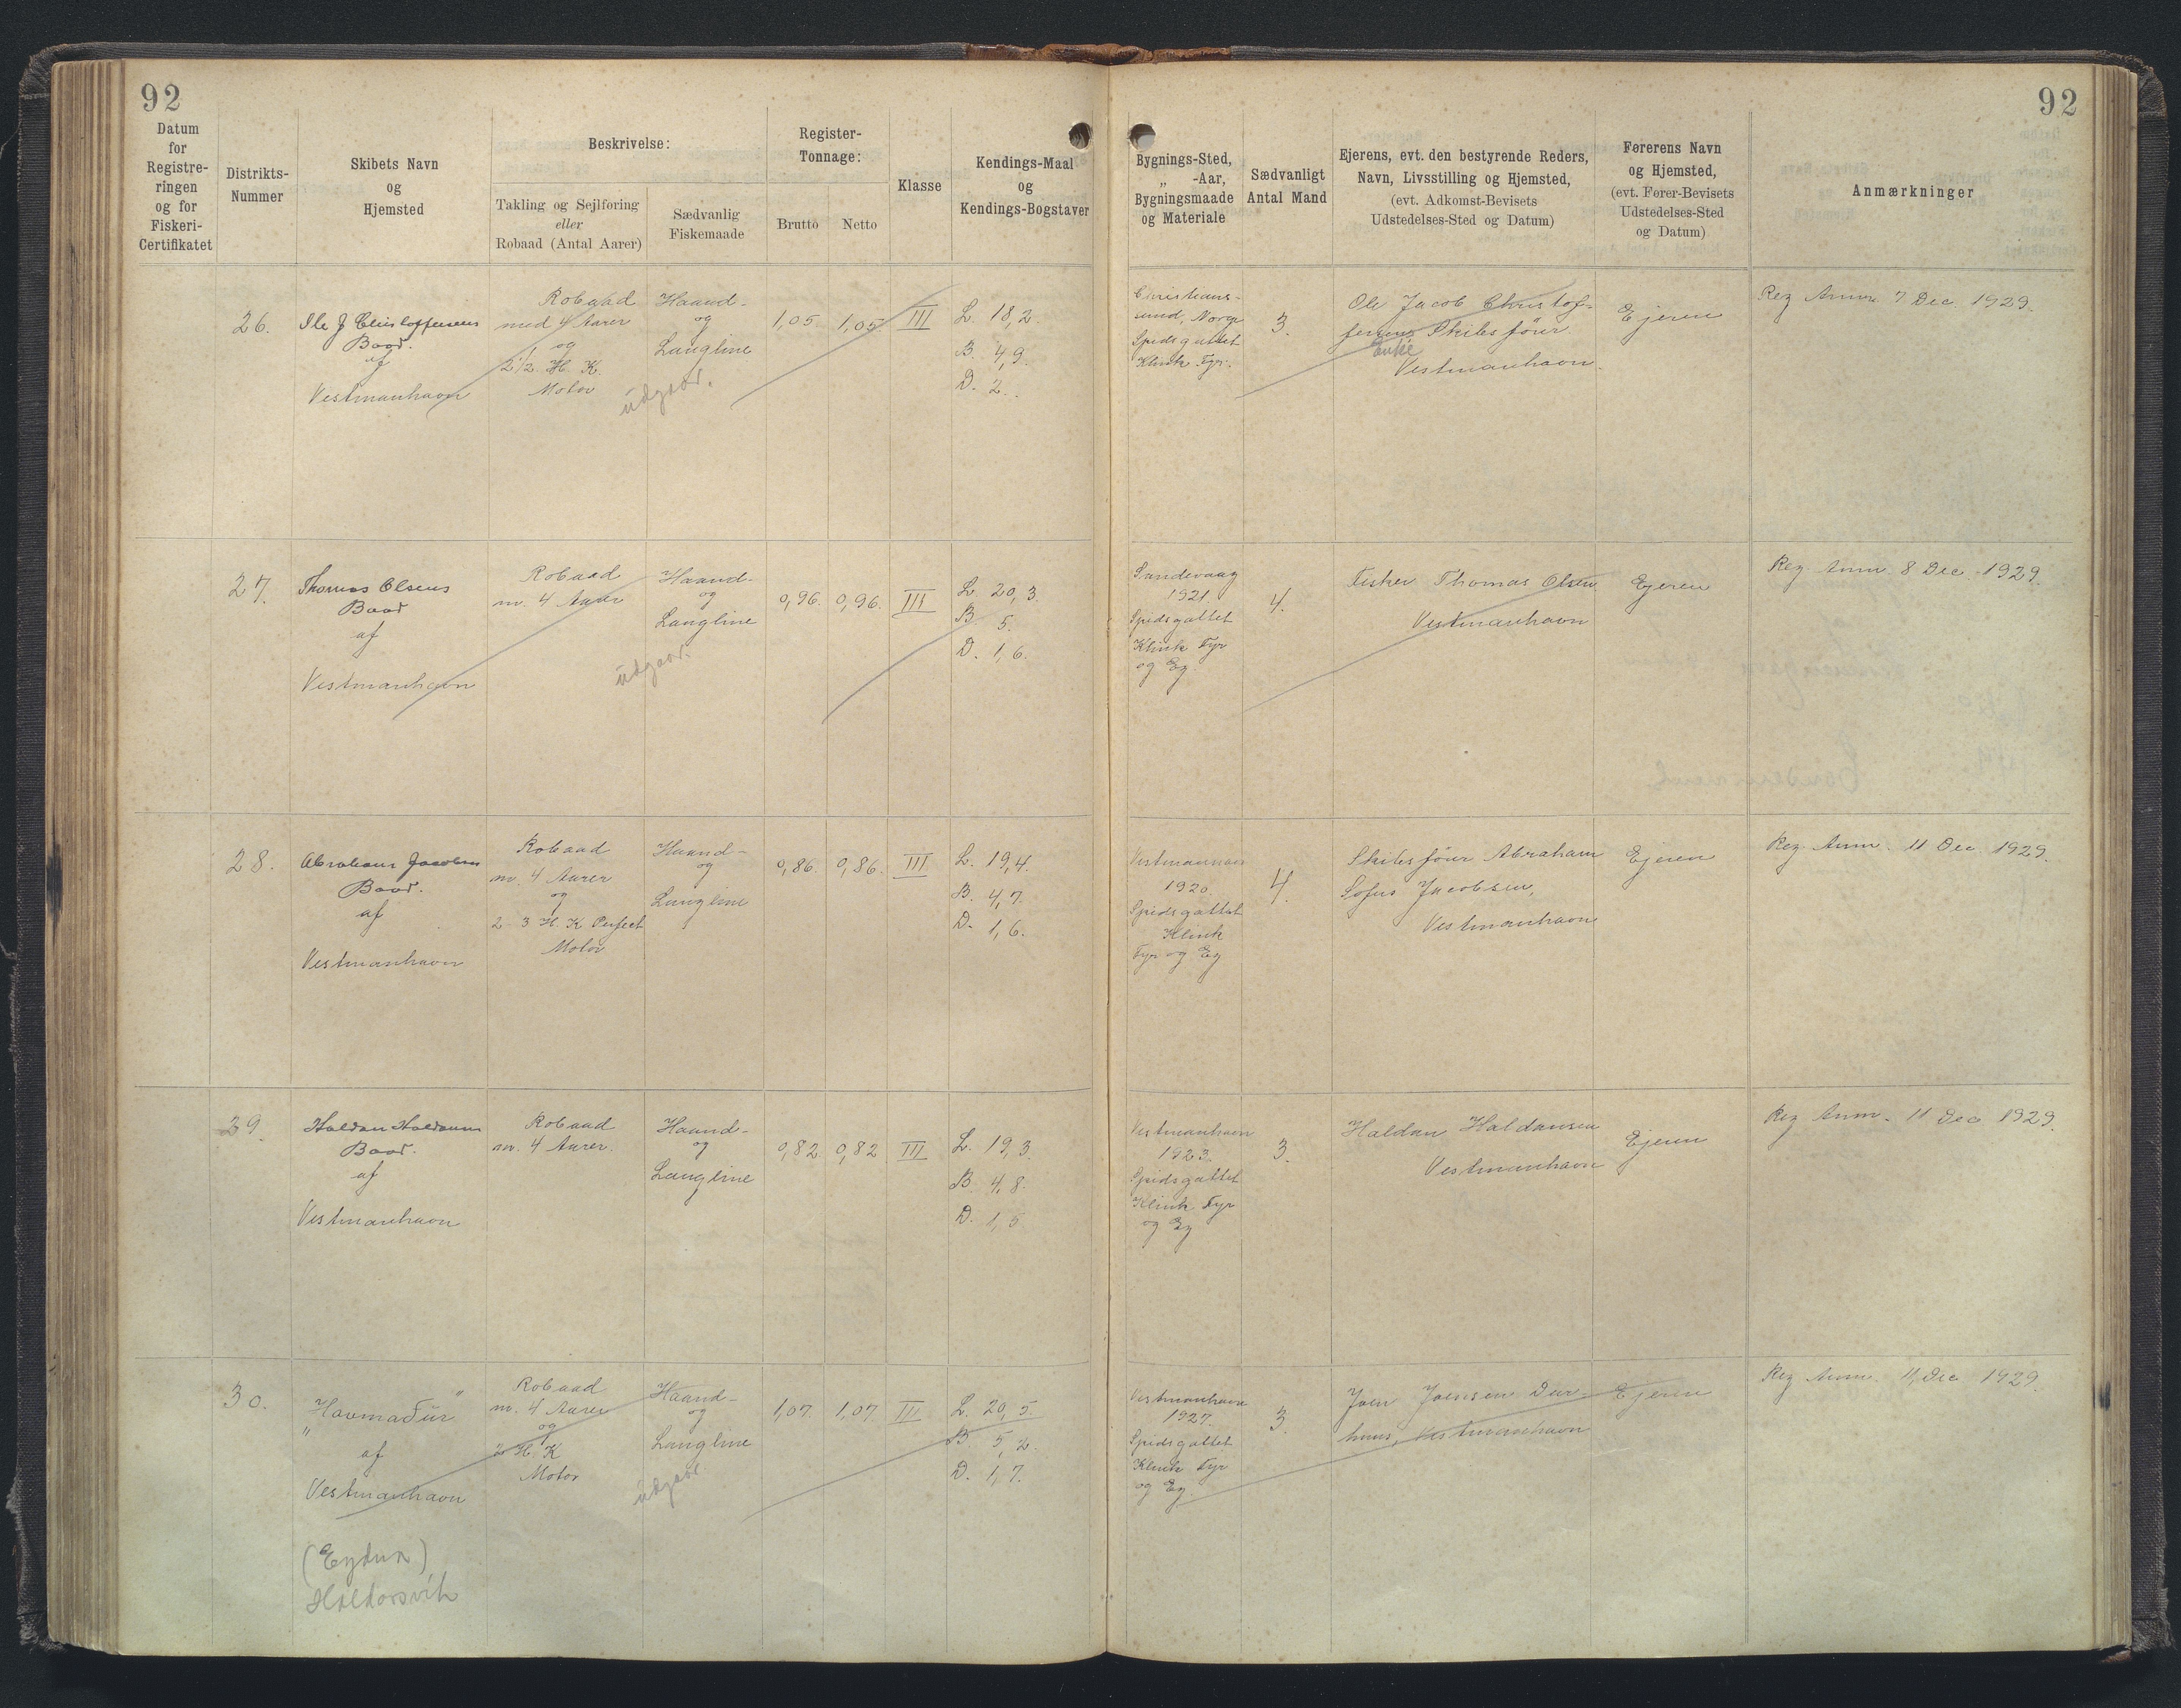 92
Datum
for
Registre-
ringen
og for
Fiskeri-
Certifikatet
Distrikts-
Nummer
Skibets Navn
og
Hjemsted
Beskrivelse:
Takling og Sejlføring
eller
Robaad (Antal Aarer)
Sædvanlig
Fiskemaade
Register-
Tonnage:
Brutto
Netto
Klasse
Kendings-Maal
og
Kendings-Bogstaver
92
Bygnings-Sted,
„ -Aar,
Bygningsmaade
og Materiale
Sædvanligt
Antal Mand
Ejerens, evt. den bestyrende Reders,
Navn, Livsstilling og Hjemsted,
(evt. Adkomst-Bevisets
Udstedelses-Sted og Datum)
Førerens Navn
og Hjemsted,
(evt. Fører-Bevisets
Udstedelses-Sted
og Datum)
Anmærkninger
26.
Ole J Christoffersens
Baad.
af
Vestmanhavn
Robaad
med 4 Aarer
og
2 1/2 H. K.
Motor
Haand-
og
Langline
udgaar.
1,05.
1,05
III
L. 18,2.
B. 4,9.
D. 2.
Christians-
sund, Norge
Spidsgattet
Klink Fyr.
3.
Ole Jacob Christof-
fersens Skibsfører
Enke
Vestmanhavn.
Ejeren
Reg Anm. 7 Dec. 1929.
27.
Thomas Olsens
Baad
af
Vestmanhavn
Robaad
m. 4 Aarer
Haand-
og
Langline
udgaar.
0,96.
0,96.
III
L. 20,3.
B. 5.
D. 1,6.
Sandevaag
1921
Spidsgattet
Klink Fyr
og Eg.
4.
Fisker Thomas Olsen
Vestmanhavn
Ejeren
Reg. Anm. 8 Dec. 1929.
28.
Abraham Jacobsens
Baad.
af
Vestmanhavn
Robaad
m. 4 Aarer
og
2-3 H. K Perfect
Motor
Haand-
og
Langline
0,86.
0,86.
III
L. 19,4.
B. 4,7.
D. 1,6.
Vestmanhavn
1920.
Spidsgattet
Klink
Fyr og Eg
4.
Skibsfører Abraham
Sofus Jacobsen,
Vestmanhavn
Ejeren
Reg Anm. 11 Dec 1929.
29.
Haldan Haldansens
Baad.
af
Vestmanhavn
Robaad
m. 4 Aarer.
Haand-
og
Langline
0,82
0,82
III
L. 19,3.
B. 4,8.
D. 1,5
Vestmanhavn
1923.
Spidsgattet
Klink Fyr
og Eg
3.
Haldan Haldansen
Vestmanhavn
Ejeren
Reg Anm. 11 Dec 1929.
30.
"Havmadur"
af
Vestmanhavn
(Eydun)
Haldorsvik
Robaad
m. 4 Aarer
og
2 H. K
Motor
Haand-
og
Langline
udgaar
1,07.
1,07
III
L. 20,5.
B 5,2.
D. 1,7.
Vestmanhavn
1927.
Spidsgattet
Klink Fyr
og Eg.
3.
Joen Joensen Dur-
huus, Vestmanhavn
Ejeren
Reg Anm. 11 Dec 1929.